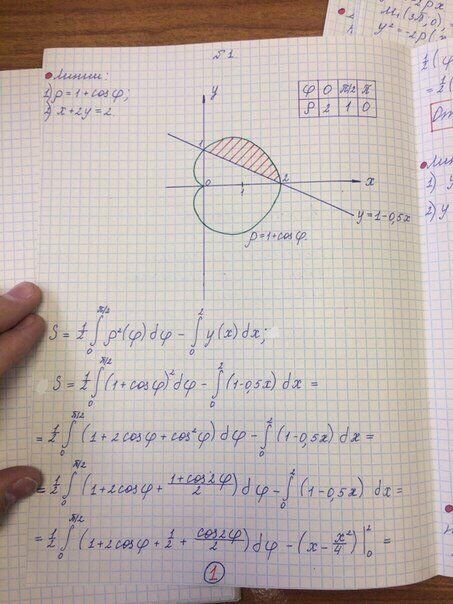 Б1.
• Линии:
1) ρ=1+cosφ;
2) x+2y=2.
φ 0 π/2 π
ρ 2 1 0
y
1
0 1 2 x
y=1-0,5x
ρ=1+cosφ.
S = 1/2 ∫₀^{π/2} ρ²(φ)dφ - ∫₀² y(x)dx;
S = 1/2 ∫₀^{π/2} (1+cosφ)²dφ - ∫₀² (1-0,5x)dx =
= 1/2 ∫₀^{π/2} (1+2cosφ+cos²φ)dφ - ∫₀² (1-0,5x)dx =
= 1/2 ∫₀^{π/2} (1+2cosφ+ (1+cos2φ)/2)dφ - ∫₀² (1-0,5x)dx =
= 1/2 ∫₀^{π/2} (1+2cosφ+ 1/2 + cos2φ/2)dφ - (x - x²/4)|₀² =
1
M₁(3π,0)
1)
2)